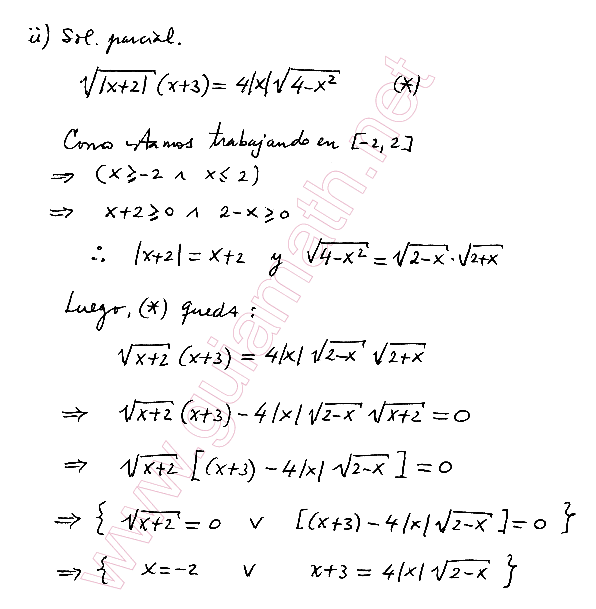 ii) Sol. parcial.
√|x+2| (x+3) = 4|x|√4-x² (*)
Como estamos trabajando en [-2, 2]
⇒ (x ≥ -2 ∧ x ≤ 2)
⇒ x+2 ≥ 0 ∧ 2-x ≥ 0
∴ |x+2| = x+2 y √4-x² = √2-x · √2+x
Luego, (*) queda:
√x+2 (x+3) = 4|x| √2-x √2+x
⇒ √x+2 (x+3) - 4|x| √2-x √x+2 = 0
⇒ √x+2 [(x+3) - 4|x| √2-x ] = 0
⇒ { √x+2 = 0 ∨ [(x+3) - 4|x|√2-x ] = 0 }
⇒ { x = -2 ∨ x+3 = 4|x|√2-x }
www.guiamath.net